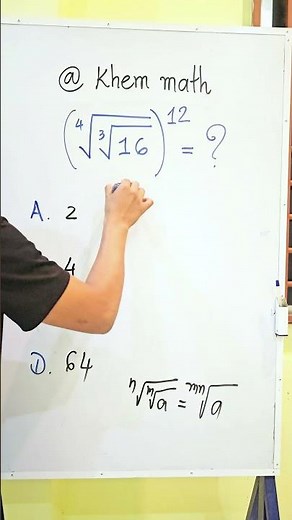 @ Khem math
(⁴√(³√16))¹² = ?
A. 2
4
D. 64
ⁿ√(ᵐ√a) = ᵐⁿ√a